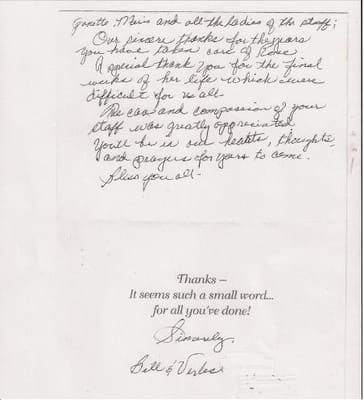 and all the ladies of the staff;
Our sincere thanks for the years
you have taken care of Rose
A special thank you for the final
weeks of her life which were
difficult for us all-
The care and compassion of your
staff was greatly appreciated
You'll be in our hearts, thoughts,
and prayers for years to come.
Bless you all-
Thanks –
It seems such a small word...
for all you've done!
Sincerely,
Bill &